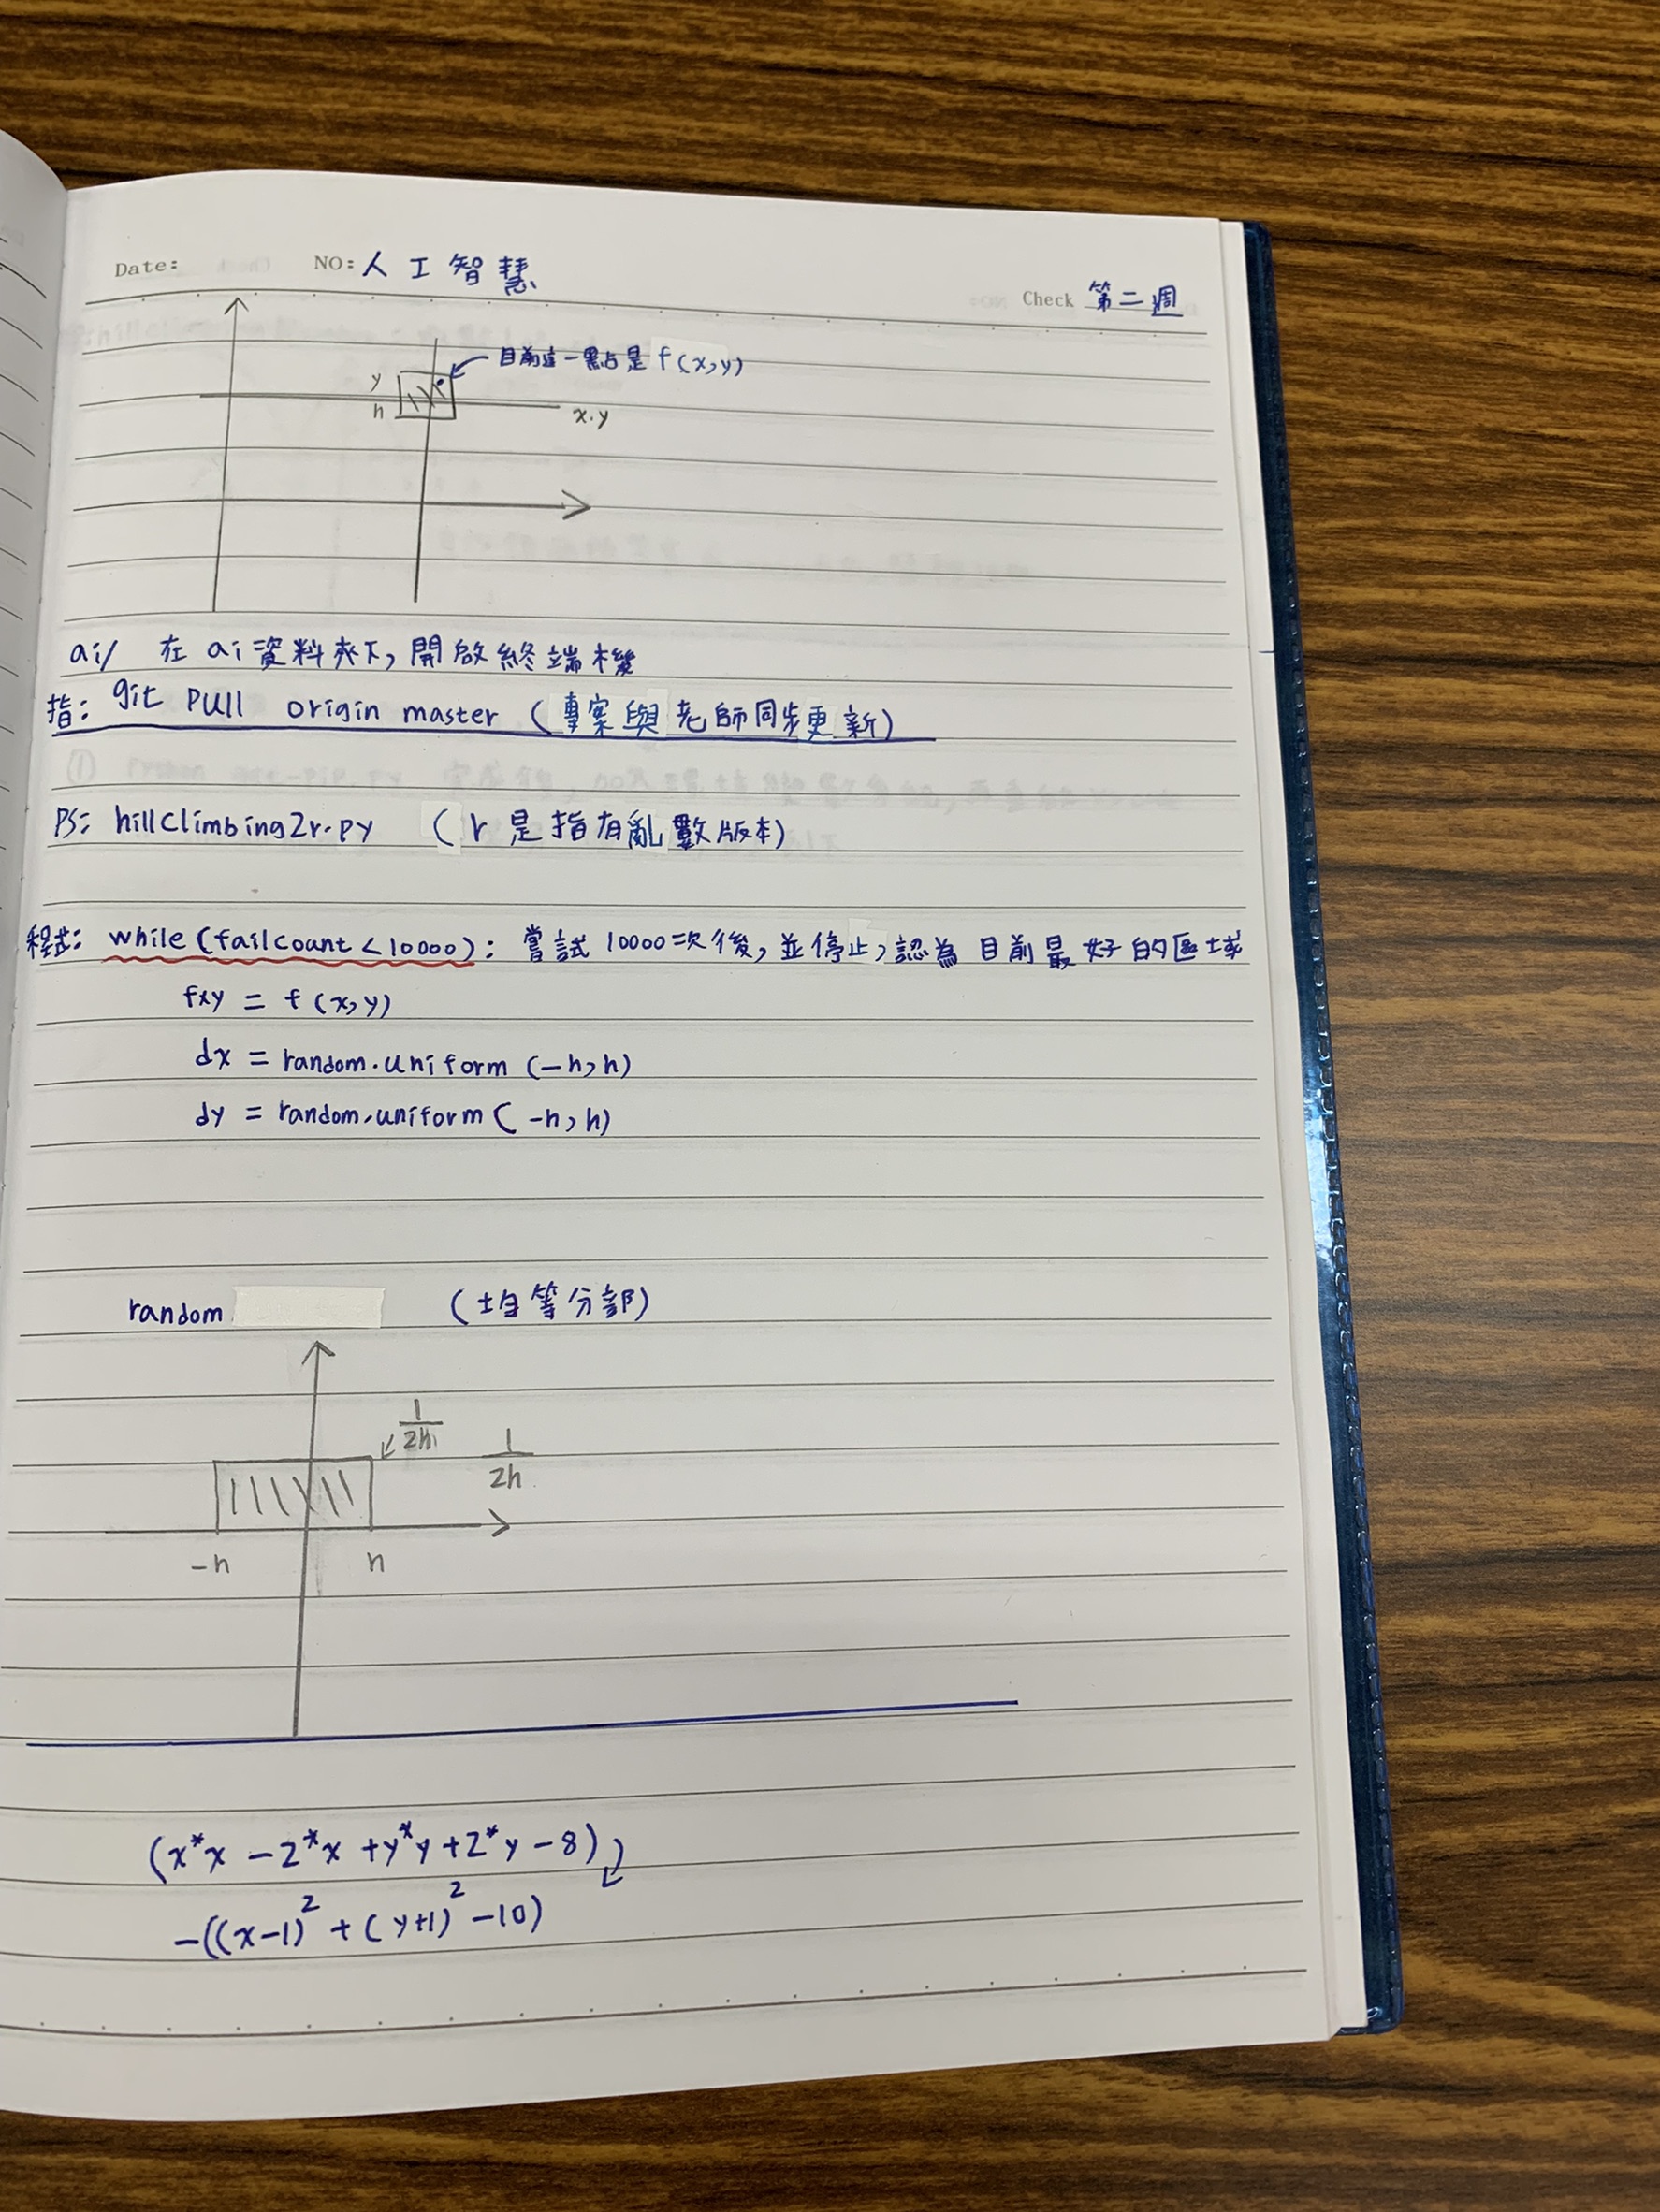 Date: NO: 人工智慧
Check 第二週
目前這一點是 f(x,y)
y
h
x.y
ai/ 在 ai 資料夾下, 開啟終端機
指: git pull origin master (專案與老師同步更新)
PS: hillClimbing2r.py (r 是指有亂數版本)
程式: while (failcount < 10000): 嘗試 10000 次後, 並停止, 認為目前最好的區域
fxy = f(x,y)
dx = random.uniform (-h,h)
dy = random.uniform (-h,h)
random (均等分部)
1/2h
1/2h
-h h
(x*x - 2*x + y*y + 2*y - 8)
-((x-1)² + (y+1)² - 10)